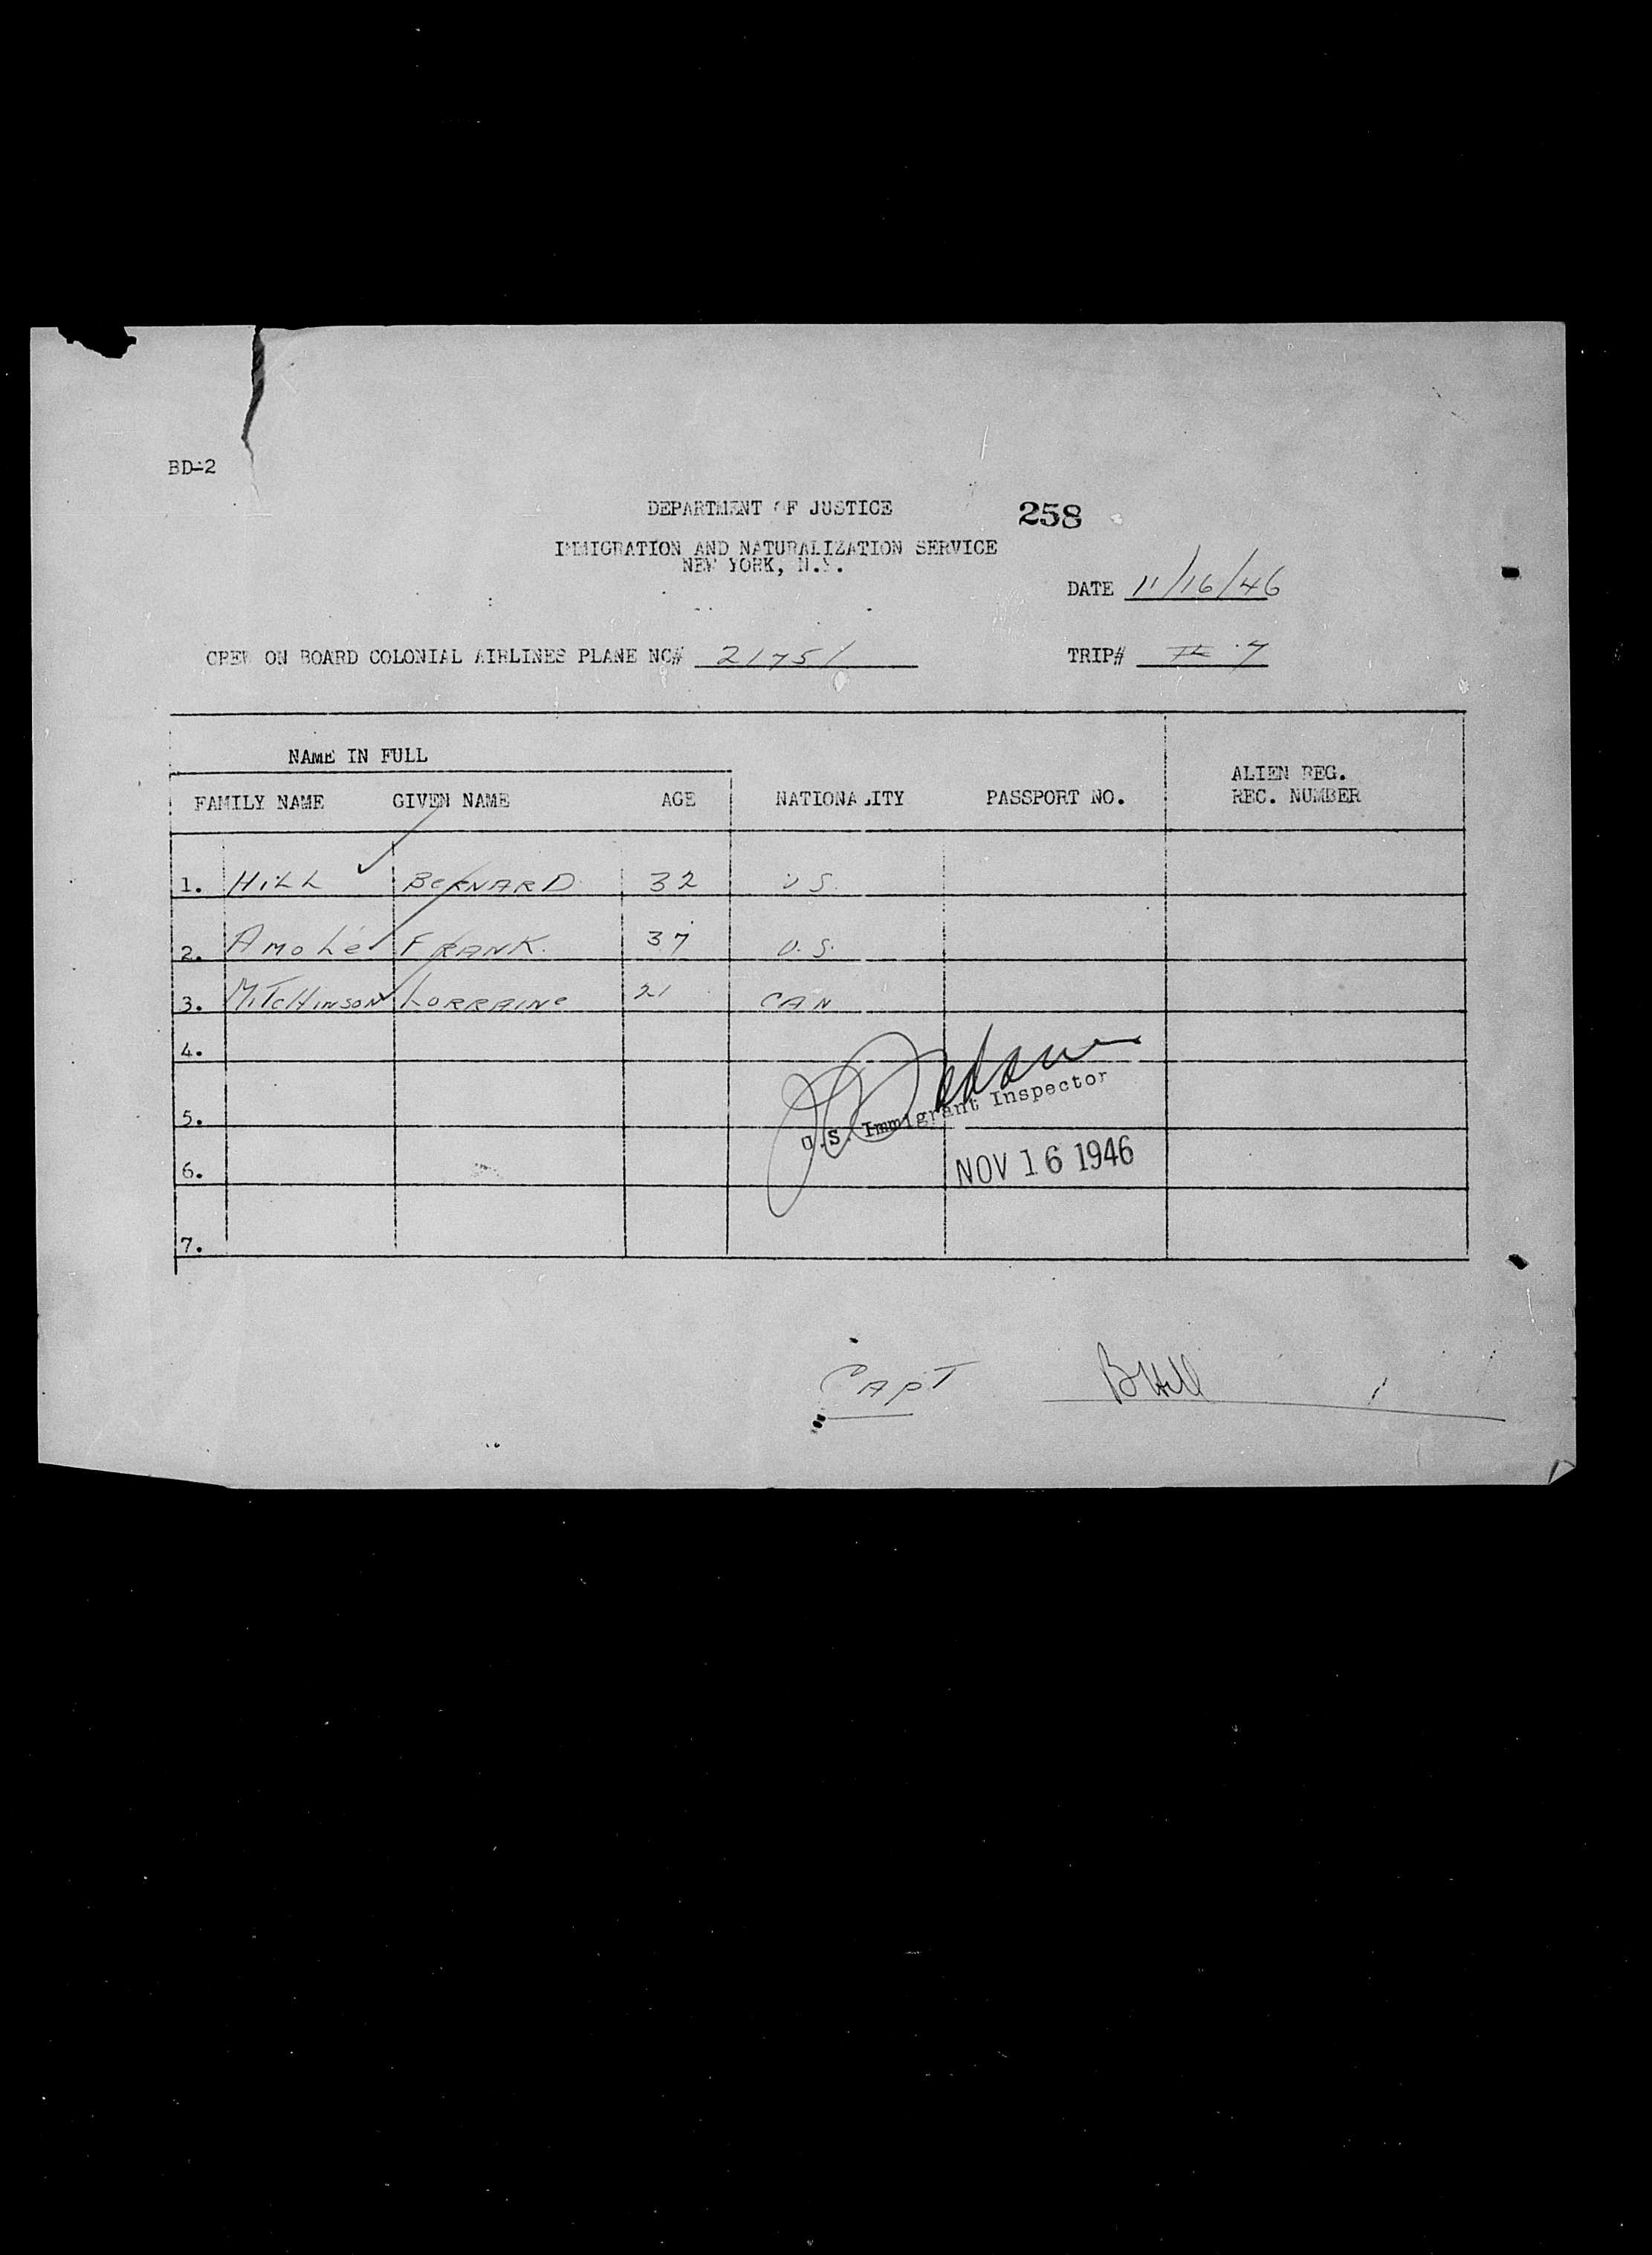 BD-2
DEPARTMENT OF JUSTICE 258
IMMIGRATION AND NATURALIZATION SERVICE
NEW YORK, N.Y.
DATE 11/16/46
CREW ON BOARD COLONIAL AIRLINES PLANE NC# 21751 TRIP# 7
NAME IN FULL
ALIEN REG.
FAMILY NAME GIVEN NAME AGE NATIONALITY PASSPORT NO. REC. NUMBER
1. HILL BERNARD 32 U S.
2. Amole FRANK. 37 U. S.
3. MITCHINSON LORRAINE 21 CAN
4.
U.S. Immigrant Inspector
5.
6. NOV 16 1946
7.
CAPT B Hill